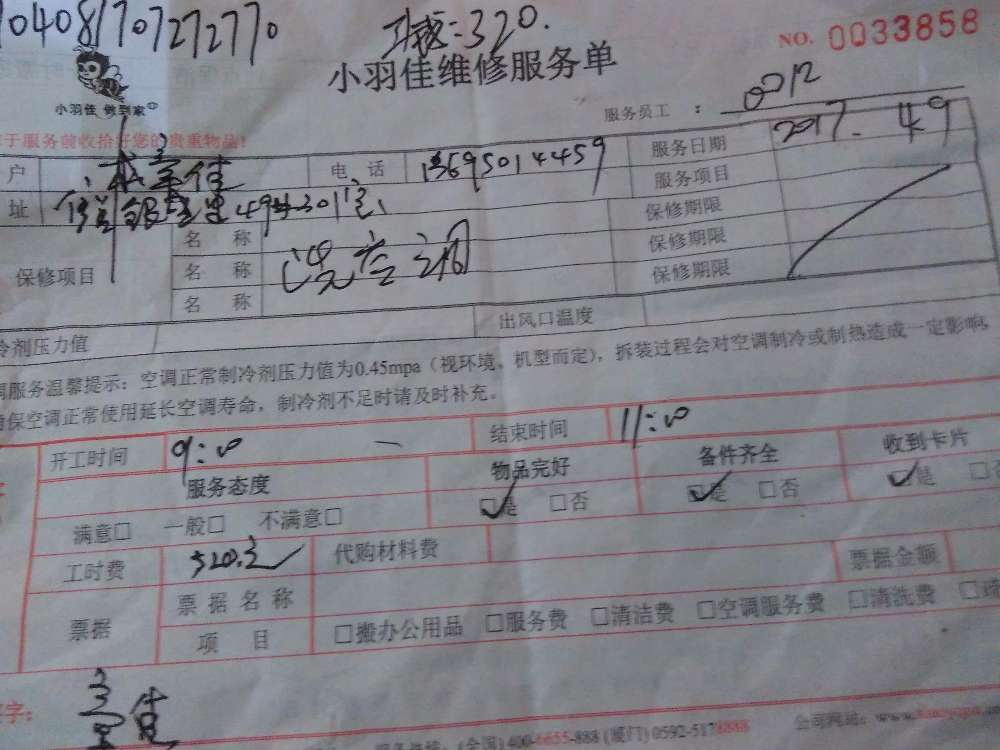 04081707272770 :320.
NO. 0033858
小羽佳维修服务单
小羽佳 做到家
服务员工 : 0012
于服务前收拾好您的贵重物品!
户 佳 电 话 13695014459 服务日期 2017. 49
址 服务项目
保修项目 名 称 洗空调 保修期限
名 称 保修期限
名 称 保修期限
冷剂压力值 出风口温度
调服务温馨提示: 空调正常制冷剂压力值为0.45mpa (视环境、机型而定), 拆装过程会对空调制冷或制热造成一定影响,
保空调正常使用延长空调寿命, 制冷剂不足时请及时补充。
开工时间 9:00 结束时间 11:00
服务态度 物品完好 备件齐全 收到卡片
满意□ 一般□ 不满意□ ☑是 □否 ☑是 □否 ☑是 □否
工时费 320元 代购材料费 票据金额
票据 票据名称
项 目 □搬办公用品 □服务费 □清洁费 □空调服务费 □清洗费
字: 佳
服务热线: (全国) 400-6655-888 (厦门) 0592-5178888 公司网站: www.